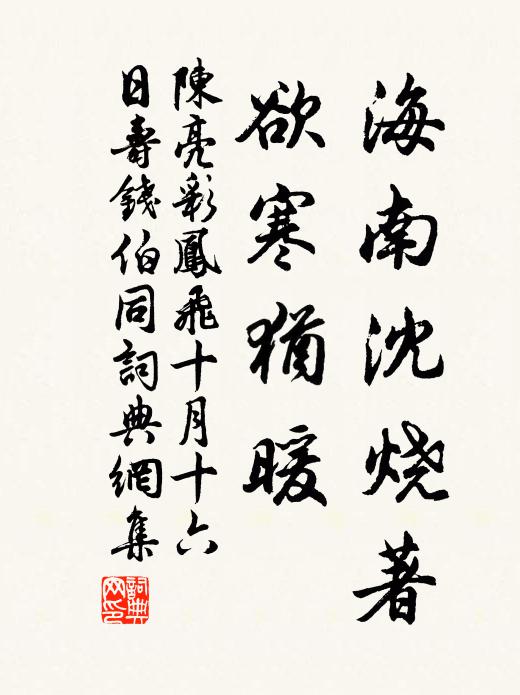 海南沈燒著
欲寒猶暖
陳亮彩鳳飛十月十六
日壽錢伯同詞典網集
詞典
网印